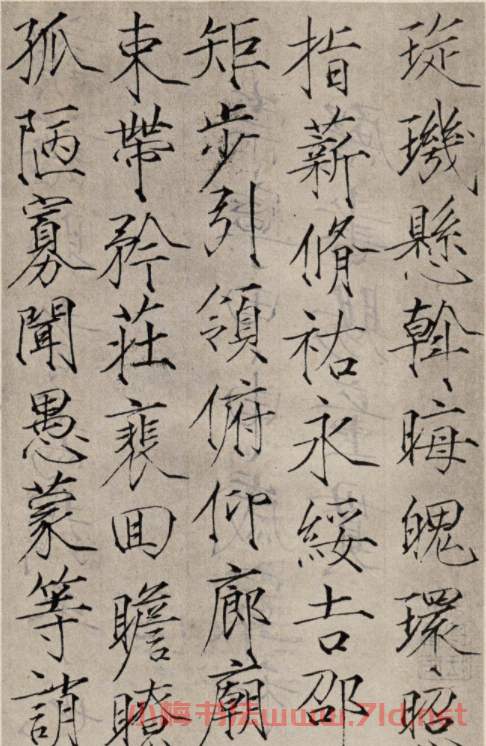 琁璣懸斡晦魄環昭
指薪脩祐永綏吉邵
矩步引領俯仰廊廟
束帶矜莊裴回瞻眺
孤陋寡聞愚蒙等誚
小梅书法www.7ld.net